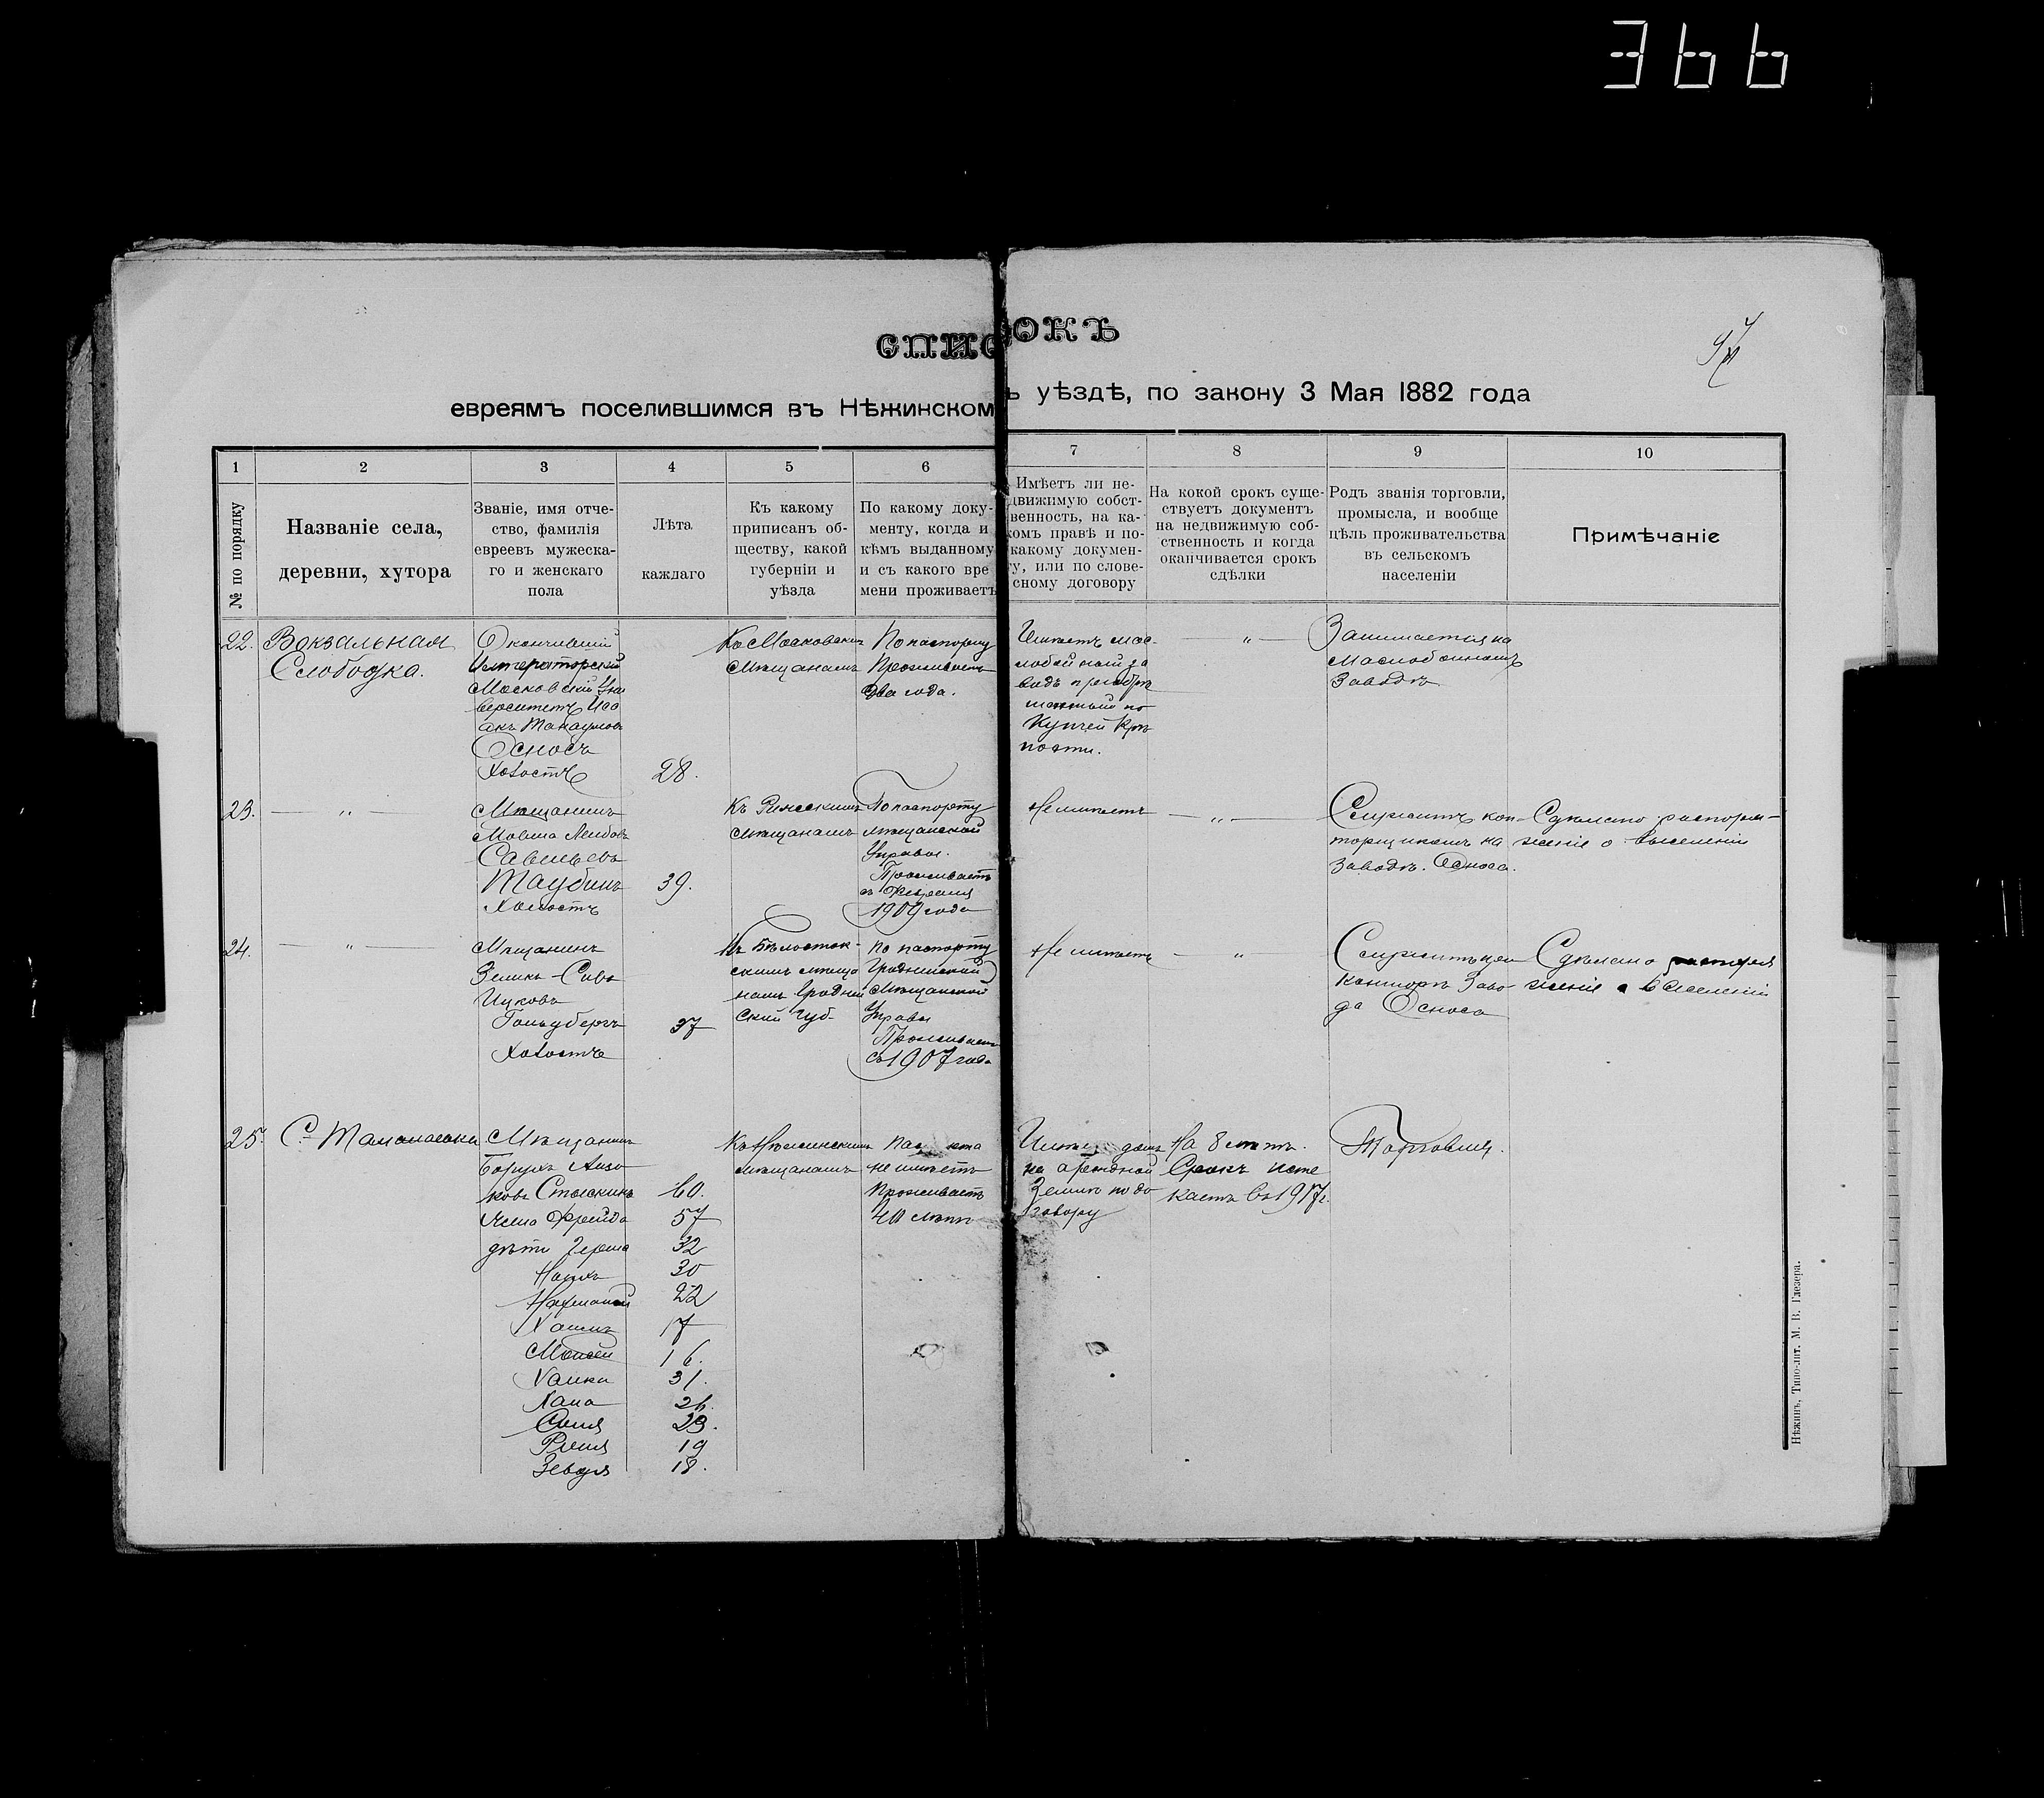 366
97
СПИСОКЪ
евреямъ поселившимся въ Нѣжинскомъ уѣздѣ, по закону 3 Мая 1882 года
1
2
3
4
5
6
7
8
9
10
№ по порядку
Названіе села,
деревни, хутора
Званіе, имя отче-
ство, фамилія
евреевъ мужеска-
го и женскаго
пола
Лѣта
каждаго
Къ какому
приписанъ об-
ществу, какой
губерніи и
уѣзда
По какому доку-
менту, когда и
кѣмъ выданному
и съ какого вре
мени проживаетъ
Имѣетъ ли не-
движимую собст-
венность, на ка-
комъ правѣ и по-
какому докумен-
ту, или по слове-
сному договору
На кокой срокъ суще-
ствуетъ документъ
на недвижимую соб-
ственность и когда
оканчивается срокъ
сдѣлки
Родъ званія торговли,
промысла, и вообще
цѣль проживательства
въ сельскомъ
населеніи
Примѣчаніе
22.
Вокзальная
Слободка.
Окончившій
Императорскій
Московскій Уни
верситетъ Иса
акъ
Осносъ
Холостъ
28.
Къ Московскимъ
мѣщанамъ
По паспорту
Проживаетъ
два года.
Имѣетъ мас-
лобойный за
водъ пріобрѣ
тенный по
Купчей Крѣ
пости.
— „ —
Занимается на
Маслобойномъ
Заводѣ
23.
— „ —
Мѣщанинъ
Мовша Лейбовъ
Савельевъ
Таубинъ
Холостъ
39.
Къ Рижскимъ
мѣщанамъ
По паспорту
мѣщанской
Управы.
Проживаетъ
съ Февраля
1909 года
Не имѣетъ
— „ —
Служитъ кон-
торщикомъ на
Заводѣ Осноса.
Сдѣлано распоря-
женіе о выселеніи
24.
— „ —
Мѣщанинъ
Зеликъ-
Ицковъ
Гольдбергъ
Холостъ
37
Къ Бѣлосток-
скимъ мѣща
намъ Гроднен
ской Губ.
По паспорту
Гродненской
Мѣщанской
Управы
Проживаетъ
съ 1907 года
Не имѣетъ
— „ —
Служитъ при
Конторѣ Заво
да Осноса
Сдѣлано распоря
женіе о выселеніи
25.
С.
Мѣщанинъ
Борухъ
60.
Жена Фрейда
57
дѣти Герша
32
30
22
Хаимъ
17
Моисей
16.
Хайка
31.
Хана
26.
Соня
23.
19
18.
Къ Нѣжинскимъ
мѣщанамъ
не имѣетъ
Проживаетъ
40 лѣтъ
Имѣетъ домъ
на арендной
Землѣ по до
говору
На 8 лѣтъ.
Срокъ исте
каетъ въ 1917 г.
Торговля.
Нѣжинъ, Типо-лит. М. В. Глезера.